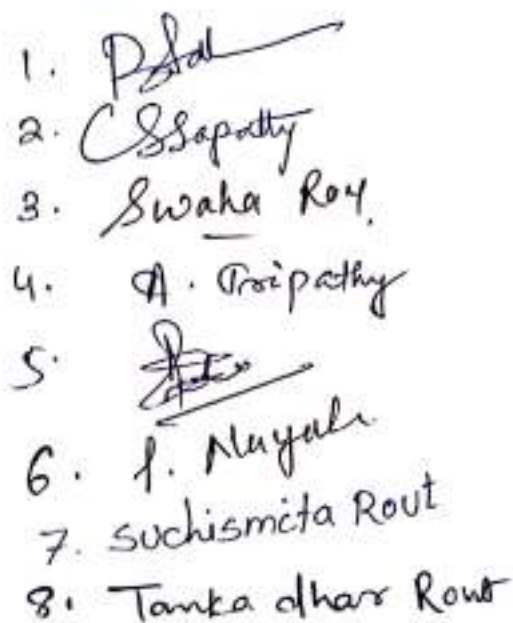 1.
2.
3. Swaha Roy.
4. A. Tripathy
5.
6. P. Nayak
7. Suchismita Rout
8. Tanka dhar Rout